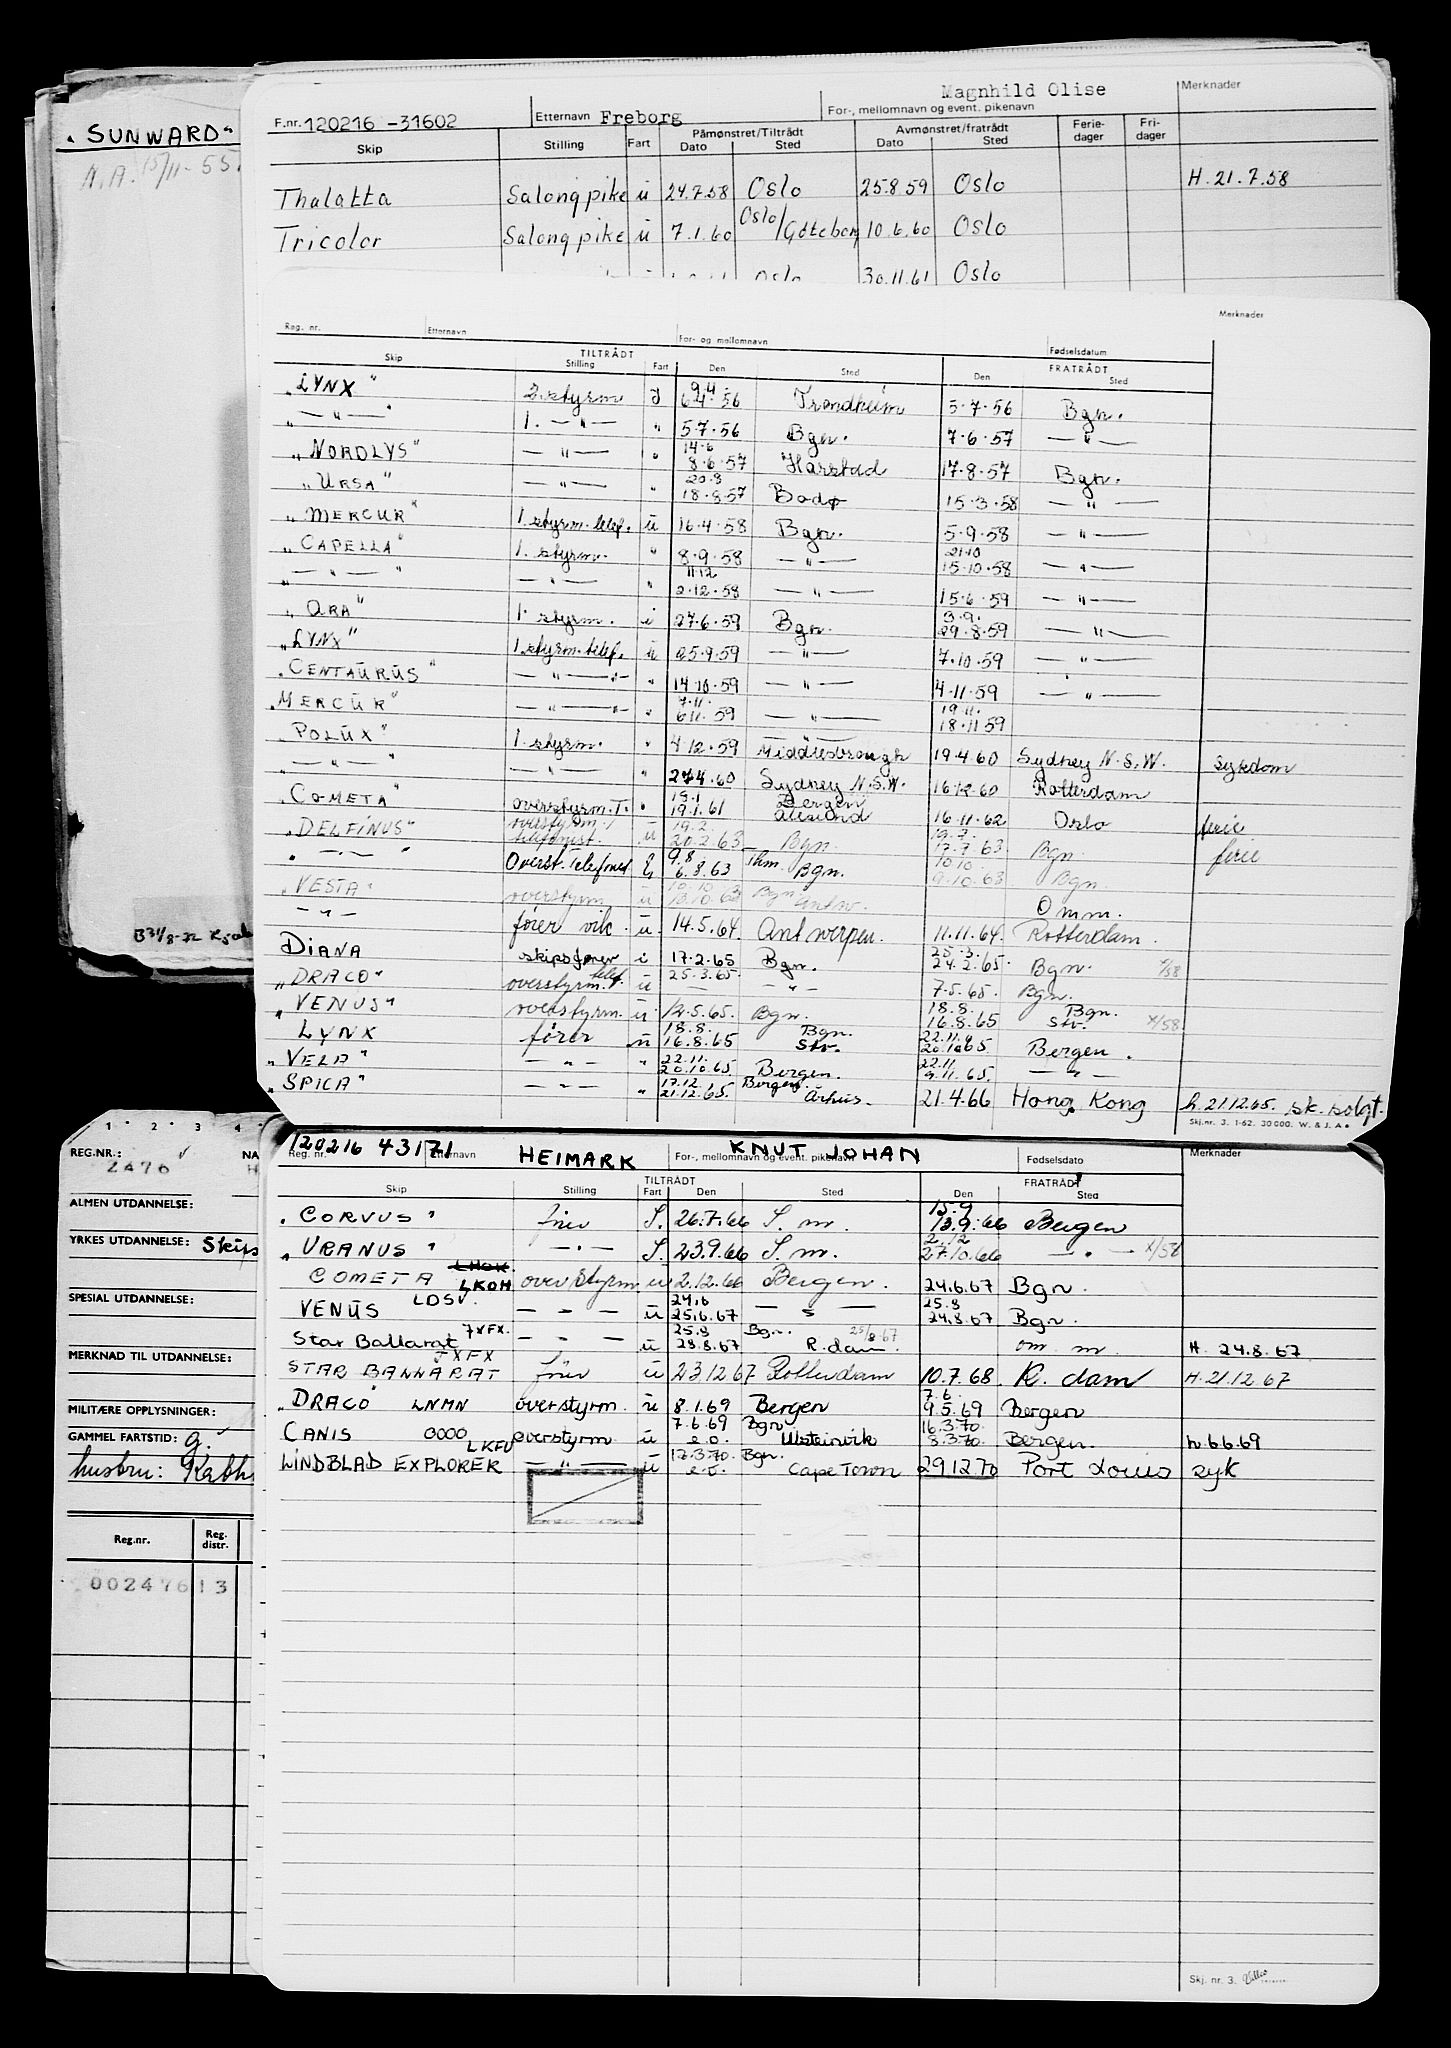 "SUNWARD"
N.A. 15/11-55.
Magnhild Olise
F.nr. 120216 -31602 Etternavn Freborg For-, mellomnavn og event. pikenavn Merknader
Skip Stilling Fart Påmønstret/Tiltrådt Dato Sted Avmønstret/fratrådt Dato Sted Ferie-dager Fri-dager
Thalatta Salongpike u 24.7.58 Oslo 25.8.59 Oslo H. 21.7.58
Tricolor Salongpike u 7.1.60 Oslo/Göteborg 10.6.60 Oslo
Oslo 30.11.61 Oslo
Reg. nr. Etternavn For- og mellomnavn Fødselsdatum Merknader
TILTRÅDT FRATRÅDT
Skip Stilling Fart Den Sted Den Sted
"LYNX" 2. styrm. 9.4. 6.4.56 Trondheim 5.7.56 Bgn.
" — " — " 1. — " — " 5.7.56 Bgn. 7.6.57 — " —
"NORDLYS" — " — " 14.6 8.6.57 Harstad 17.8.57 Bgn.
"URSA" — " — " 20.8 18.8.57 Bodø 15.3.58 — " —
"MERCUR" 1. styrm. telef. ü 16.4.58 Bgn. 5.9.58 — " —
"CAPELLA" 1. styrm. " 8.9.58 — " — 21.10 15.10.58 — " —
" — " — " — " — " 11.12 2.12.58 — " — 15.6.59 — " —
"ARA" 1. styrm. i 27.6.59 Bgn. 3.9. 29.8.59 — " —
"LYNX" 1. styrm. telef. ü 25.9.59 — " — 7.10.59 — " —
"CENTAURUS" — " — " — " 14.10.59 — " — 4.11.59 — " —
"MERCUR" — " — " — " 7.11. 6.11.59 — " — 19.11. 18.11.59
"POLUX" 1. styrm. " 4.12.59 Middlesbrough 19.4.60 Sydney N.S.W. sykdom
" — " — " — " — " 27.4.60 Sydney N.S.W. 16.12.60 Rotterdam
"COMETA" overstyrm. T. " 19.1 19.1.61 Bergen Ålesund 16.11.62 Oslo ferie
"DELFINUS" overstyrm. telefonist. ü 19.2. 20.2.63 Bgn. 19.7. 17.7.63 Bgn. ferie
" — " — " Overst. Telefonist 9.8. 6.8.63 Thm. Bgn. 10.10. 9.10.63 Bgn.
"VESTA" overstyrm. ü 10.10. 13.10.63 Bgn. Antw. Omm.
— " — fører vik. ü 14.5.64. Antwerpen. 11.11.64. Rotterdam.
DIANA skipsfører i 17.2.65 Bgn. 25.3. 24.2.65. Bgn. x/58
"DRACO" overstyrm. telef. ü 25.3.65. — " — 7.5.65. Bgn.
"VENUS" overstyrm. ü 12.5.65. Bgn. 18.8. 16.8.65 Bgn. Stv. x/58
LYNX fører ü 18.8. 16.8.65 Bgn. Stv. 22.11. 20.10.65 Bergen.
"VELA" — " — " 22.11. 20.10.65 Bergen. 22.11 9.11.65. — " —
"SPICA" — " — " 17.12. 21.12.65. Bergen Århus. 21.4.66 Hong Kong h. 21.12.65. sk. solgt.
Skj.nr. 3. 1-62. 30000. W. & J. A.
1 · 2 · 3 · 4
REG.NR.: 2476 NA
ALMEN UTDANNELSE:
YRKES UTDANNELSE: Skips
SPESIAL UTDANNELSE:
MERKNAD TIL UTDANNELSE:
MILITÆRE OPPLYSNINGER:
GAMMEL FARTSTID: g.
hustru: Kath
Reg.nr. Reg. distr.
00247613
120216 43171 HEIMARK KNUT JOHAN
Reg. nr. Etternavn For-, mellomnavn og event. pikenavn Fødselsdato Merknader
TILTRÅDT FRATRÅDT
Skip Stilling Fart Den Sted Den Sted
"CORVUS" fører S. 26.7.66 S. m. 15.9 13.9.66 Bergen
"URANUS" — " — S. 23.9.66 S. m. 2.12 27.10.66 — " — x/58
COMETA LKOH overstyrm ü 2.12.66 Bergen. 24.6.67 Bgn.
VENUS LDSV. — " — ü 24.6 25.6.67 — " — 25.8 24.8.67 Bgn.
Star Ballarat JXFX. — " — ü 25.8 28.8.67 Bgn. R.dam. 25/8.67 om. m. H. 24.8.67
STAR BALLARAT JXFX fører ü 23.12.67 Rotterdam 10.7.68. R. dam H. 21.12.67
"DRACO" LNMN overstyrm. ü 8.1.69 Bergen 7.6. 9.5.69 Bergen
CANIS OOOO overstyrm ü 7.6.69 e.o. Bgn. Ulsteinvik 16.3.70. 8.3.70. Bergen. h. 6.6.69
LINDBLAD EXPLORER LKFU — " — ü 17.3.70. e.o. Bgn. Cape Town 29.12.70 Port Louis syk
Skj. nr. 3.